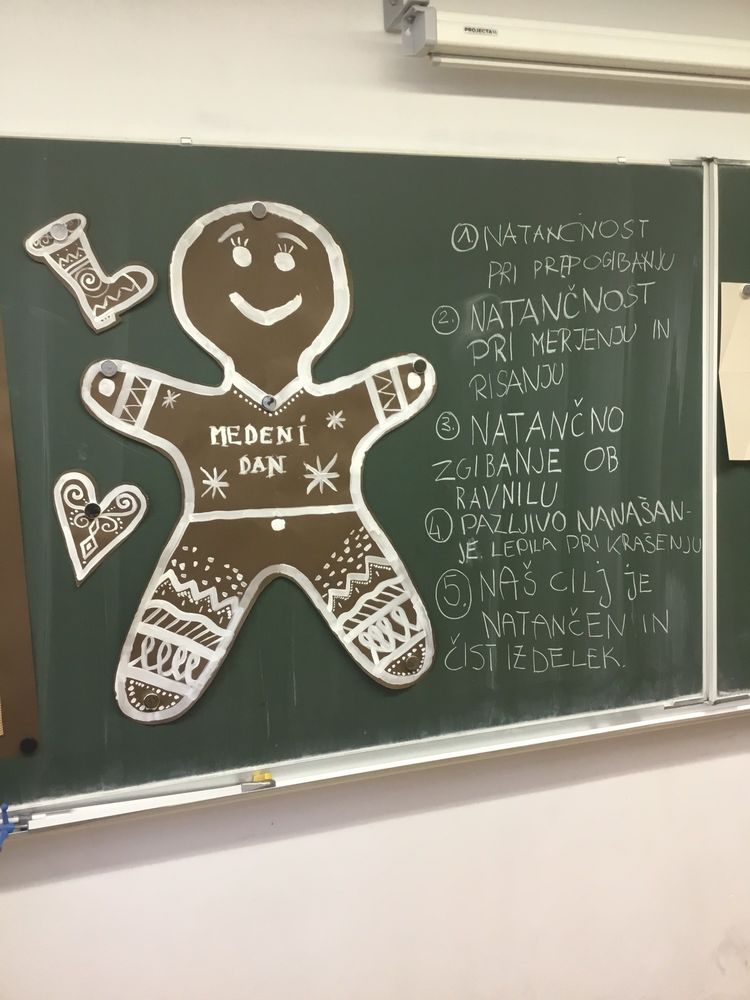 PROJECTA
MEDENI
DAN
1. NATANČNOST
PRI PREPOGIBANJU
2. NATANČNOST
PRI MERJENJU IN
RISANJU
3. NATANČNO
ZGIBANJE OB
RAVNILU
4. PAZLJIVO NANAŠAN-
JE LEPILA PRI KRAŠENJU
5. NAŠ CILJ JE
NATANČEN IN
ČIST IZDELEK.